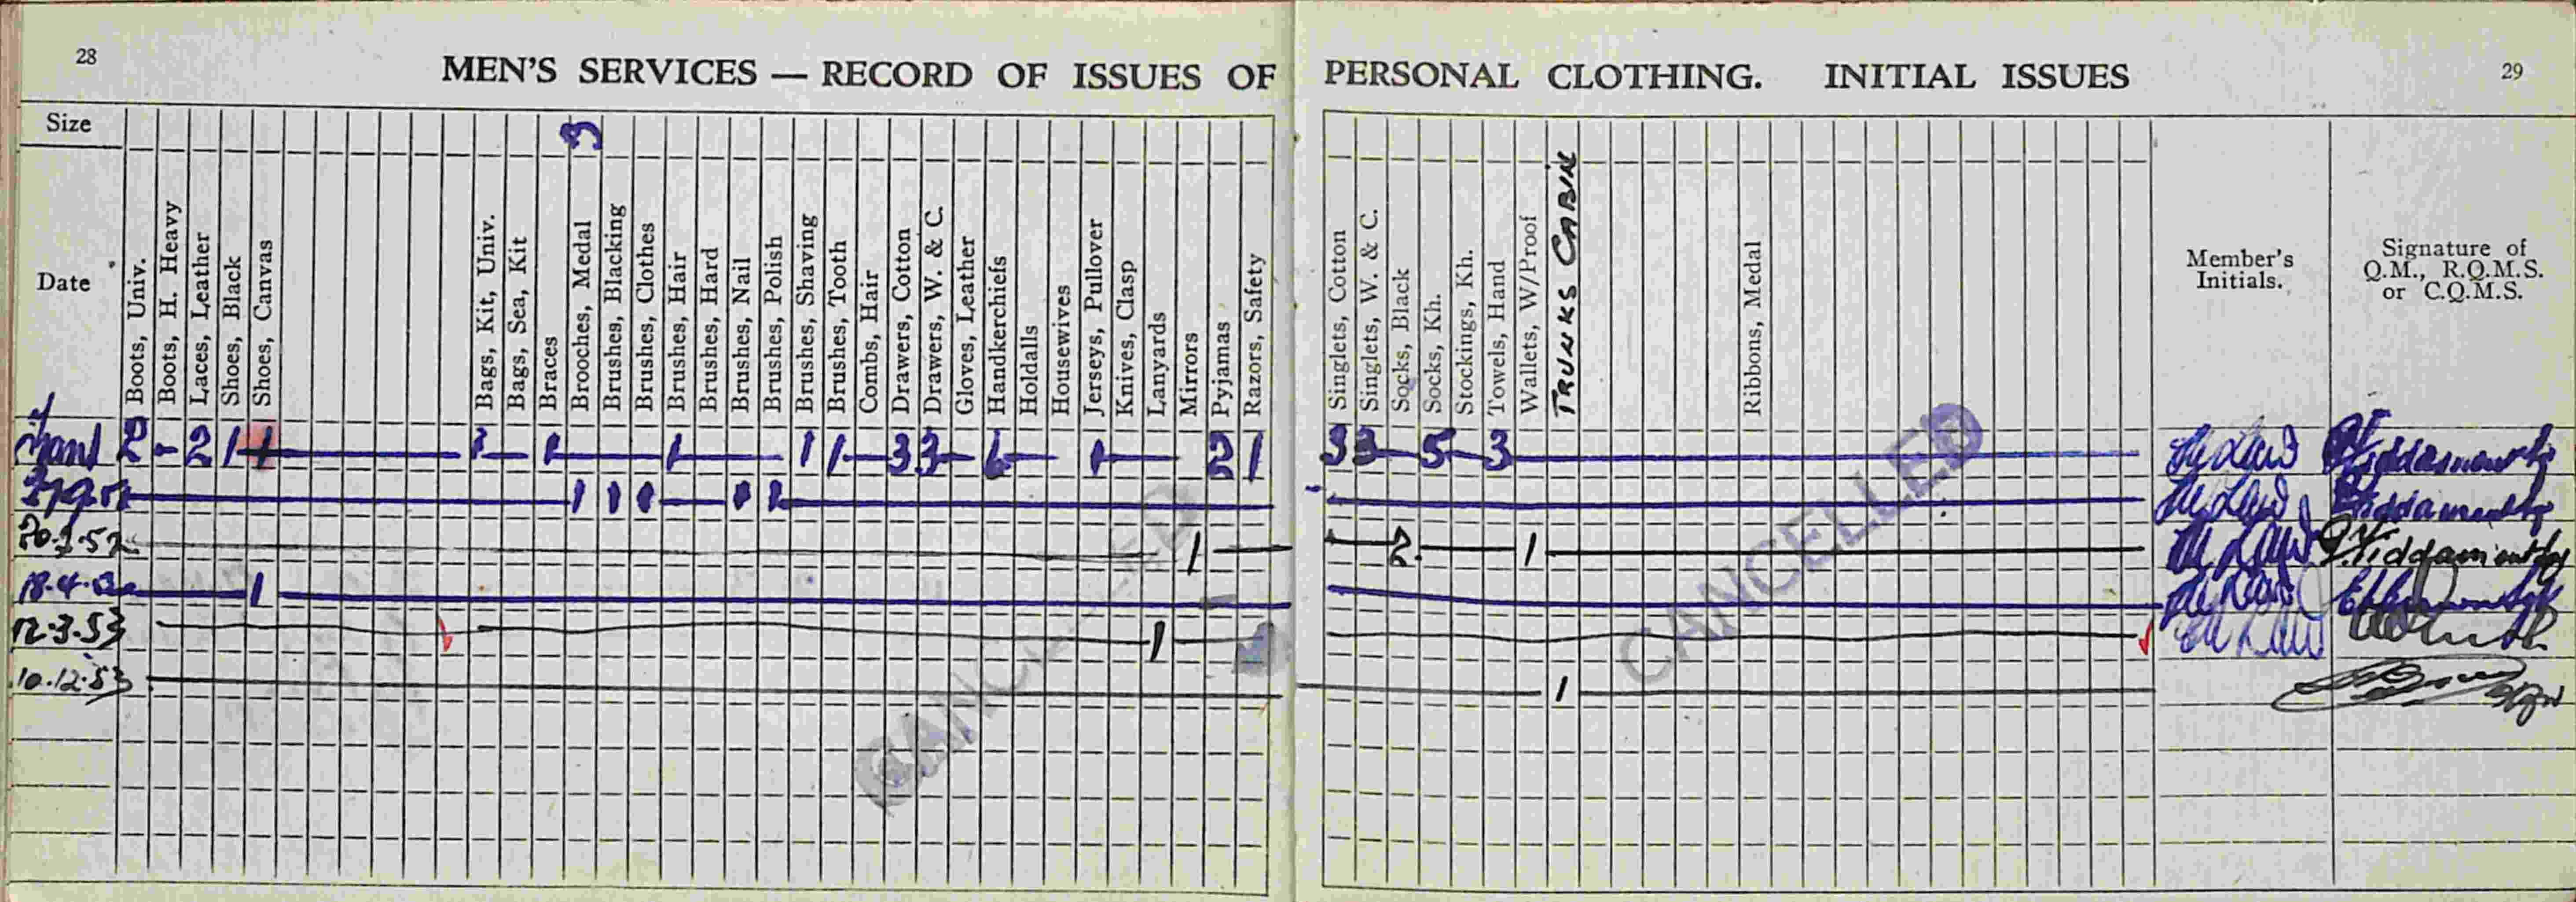 28
MEN'S SERVICES — RECORD OF ISSUES OF PERSONAL CLOTHING. INITIAL ISSUES
29
Size
3
Date
Boots, Univ.
Boots, H. Heavy
Laces, Leather
Shoes, Black
Shoes, Canvas
Bags, Kit, Univ.
Bags, Sea, Kit
Braces
Brooches, Medal
Brushes, Blacking
Brushes, Clothes
Brushes, Hair
Brushes, Hard
Brushes, Nail
Brushes, Polish
Brushes, Shaving
Brushes, Tooth
Combs, Hair
Drawers, Cotton
Drawers, W. & C.
Gloves, Leather
Handkerchiefs
Holdalls
Housewives
Jerseys, Pullover
Knives, Clasp
Lanyards
Mirrors
Pyjamas
Razors, Safety
Singlets, Cotton
Singlets, W. & C.
Socks, Black
Socks, Kh.
Stockings, Kh.
Towels, Hand
Wallets, W/Proof
TRUNKS CABIN
Ribbons, Medal
Member's Initials.
Signature of Q.M., R.Q.M.S. or C.Q.M.S.
2 - 2 1 1 1 1 1 1 1 3 3 6 1 2 1 3 3 5 3
1 1 1 1 1
1 2 1
18.4 1
12.3.53 1
10.12.53 1
CANCELLED
CANCELLED